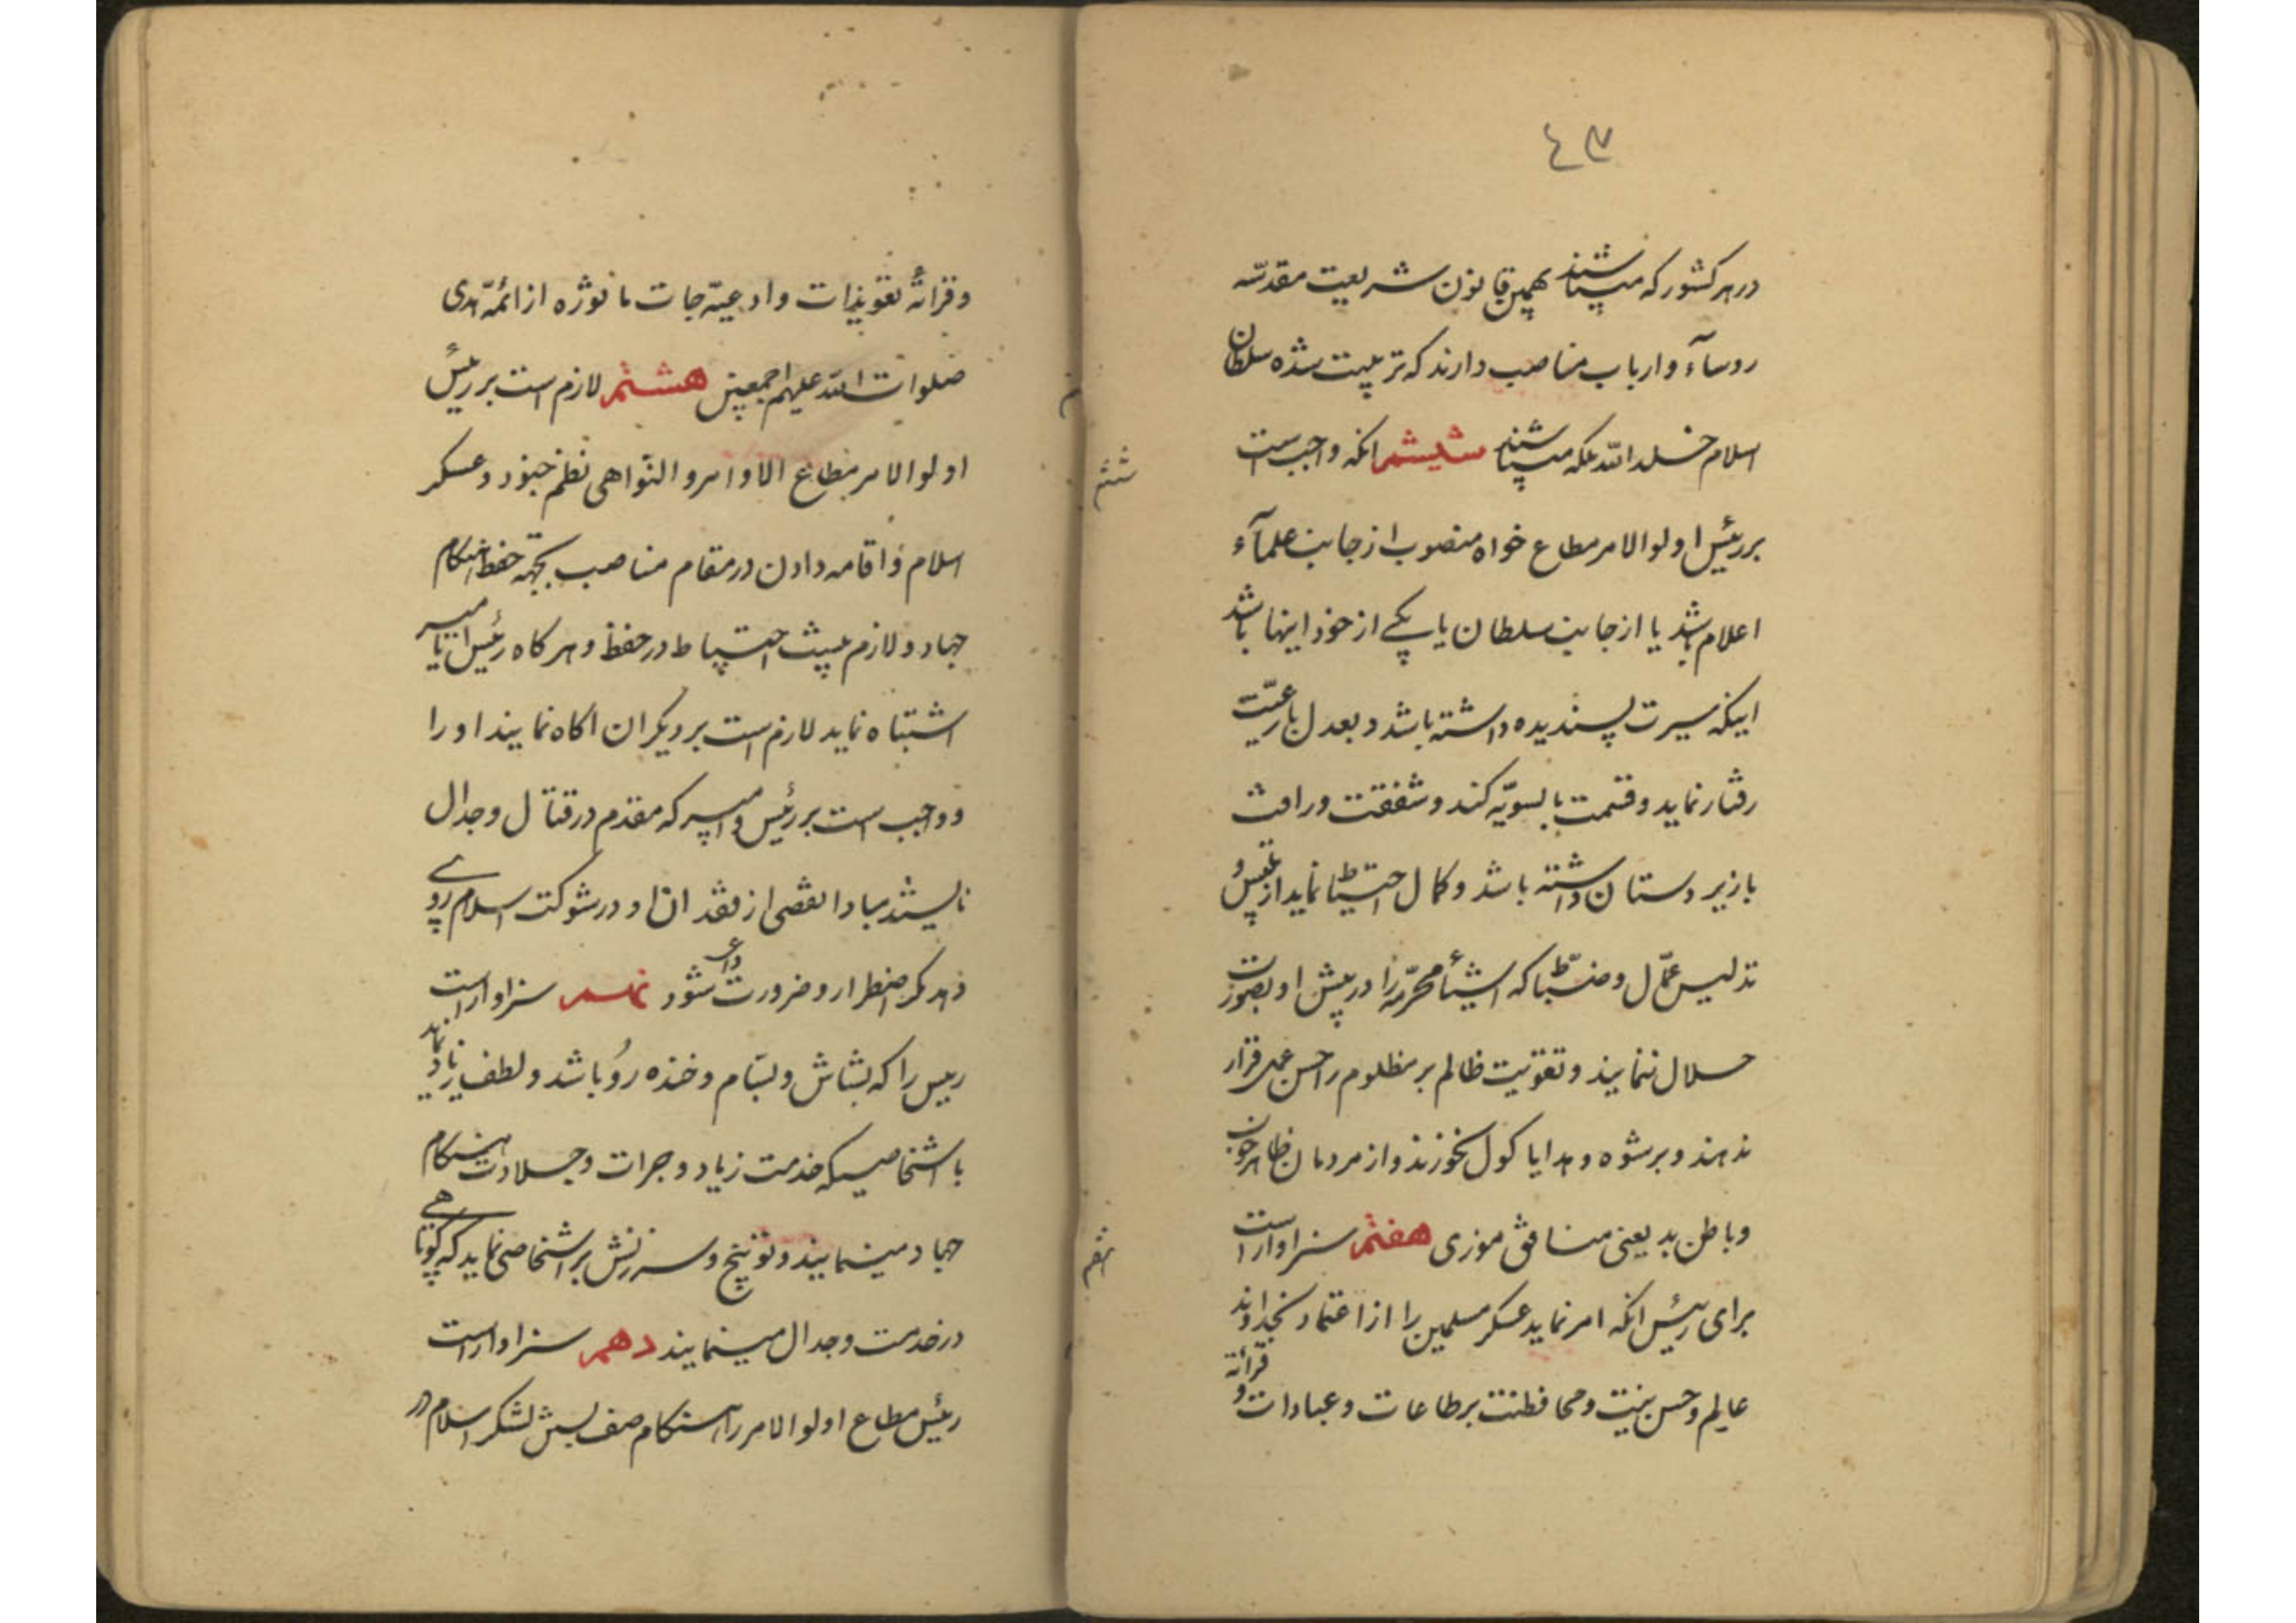 ٤٧
در هر کشور که میباشند بهمین قانون شریعت مقدّسه
روسآء و ارباب مناصب دارند که تربیت شده سلطان
اسلام خلد الله ملکه میباشند ششم انکه واجبست
بر رئیس اولوالامر مطاع خواه منصوب از جانب علمآء
اعلام باشد یا از جانب سلطان یا یکی از خود اینها باشد
اینکه سیرت پسندیده داشته باشد و بعدل با رعیّت
رفتار نماید و قسمت بالسویّه کند و شفقت و رافت
با زیر دستان داشته باشد و کمال احتیاط نماید از تلبیس و
تدلیس عمّال و ضبّاط که اشیآء محرّمه را در پیش او بصورت
حلال ننمایند و تقویت ظالم بر مظلوم را حسن عمل قرار
ندهند و برشوه و هدایا کول نخورند و از مردمان ظاهر خوب
و باطن بد یعنی منافق موذی هفتم سزاوار است
برای رئیس انکه امر نماید عسکر مسلمین را از اعتماد بخداوند
عالم و حسن نیت و محافظت بر طاعات و عبادات و قرائة
ششم
هفتم
و قرائة تعویذات و ادعیّه جات ماثوره از ائمّه هدی
صلوات الله علیهم اجمعین هشتم لازم است بر رئیس
اولوالامر مطاع الاوامر و النواهی نظم جنود و عسکر
اسلام و اقامه دادن در مقام مناصب بجهة حفظ هنکام
جهاد و لازم است احتیاط در حفظ و هر کاه رئیس یا امیر
اشتباه نماید لازم است بر دیکران اکاه نمایند او را
و واجب است بر رئیس و امیر که مقدم در قتال و جدال
نایستد مبادا نقصی از فقدان او در شوکت اسلام روی
دهد مکر اضطرار و ضرورت داعی شود نهم سزاوار است
رئیس را که بشاش و بسّام و خنده رو باشد و لطف زیاد نماید
با اشخاصیکه خدمت زیاد و جرات و جلادت هنکام
جهاد مینمایند و توبیخ و سرزنش بر اشخاصی نماید که کوتاهی
در خدمت و جدال مینمایند دهم سزاوار است
رئیس مطاع اولوالامر را هنکام صف بستن لشکر اسلام در